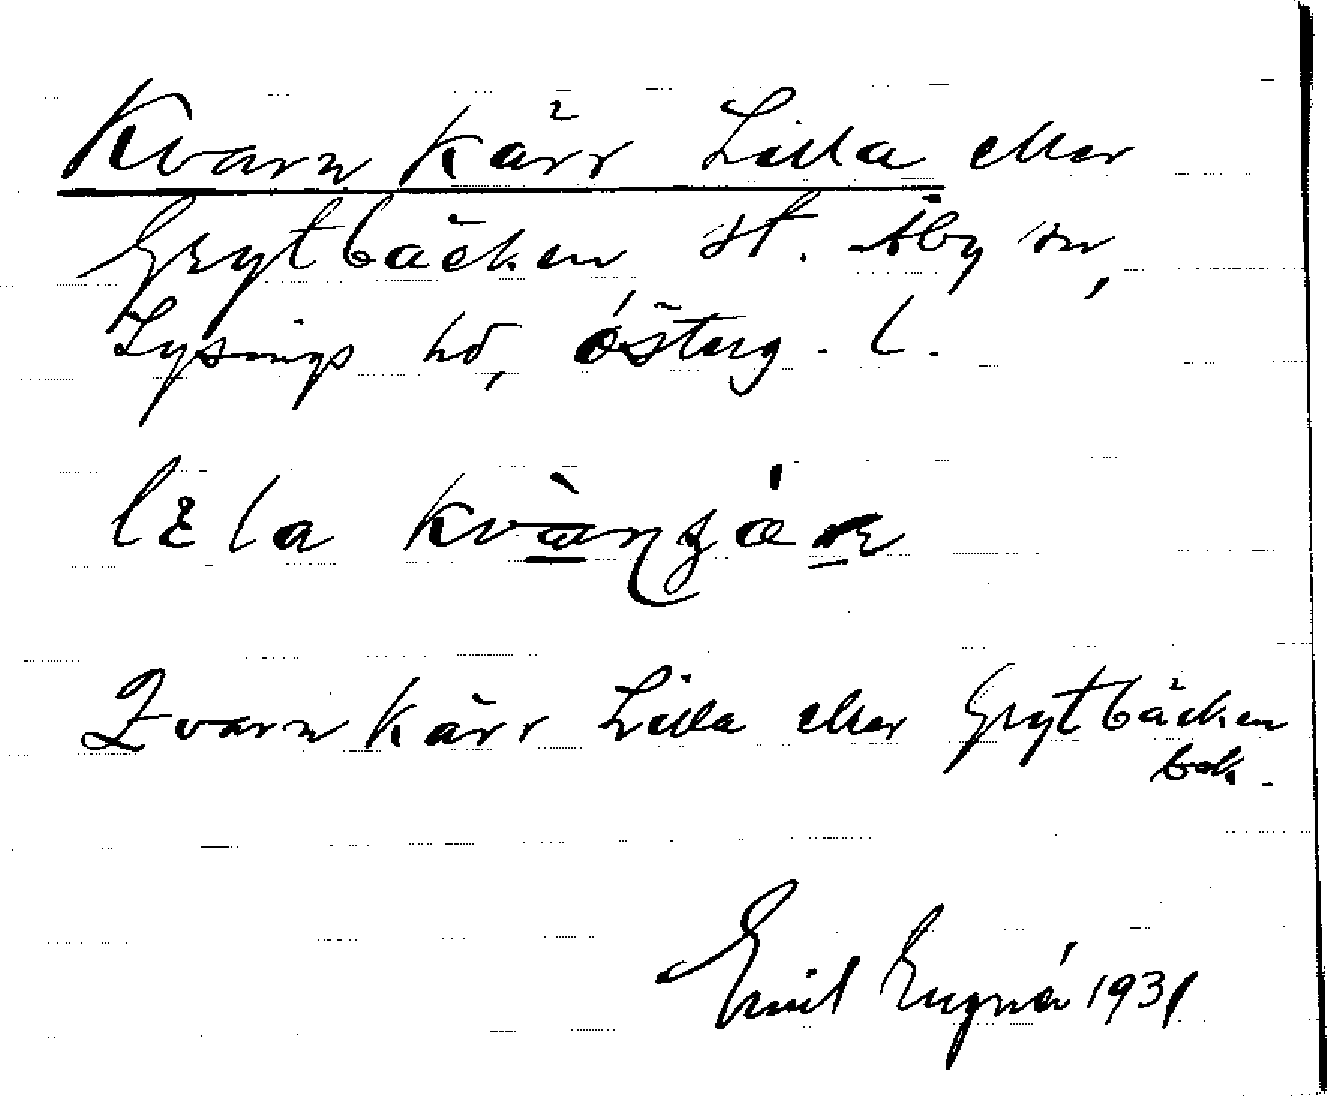 Kvarnkärr Lilla eller
Grytbäcken st. Åby sn,
Lysings hd, Österg. l.
Kvarnkärr Lilla eller Grytbäcken
bok.
Emil 1931